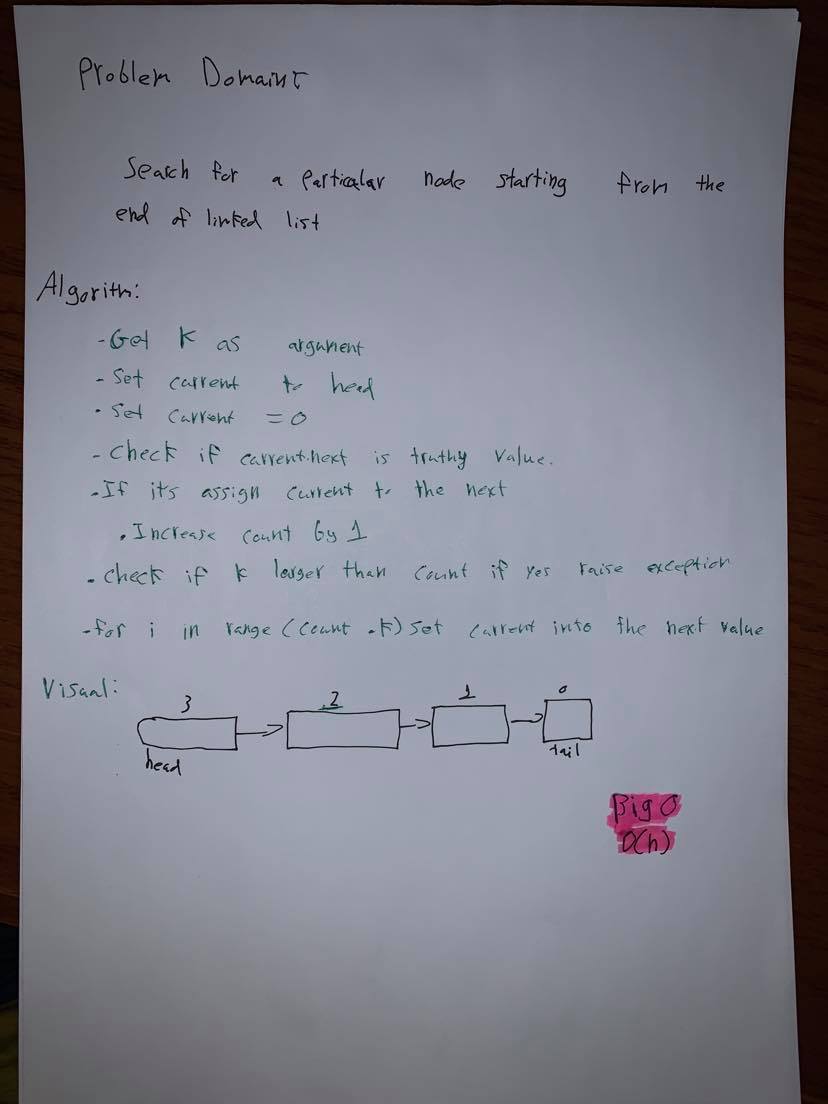 Problem Domain:
Search for a particular node starting from the
end of linked list
Algorithm:
- Get K as argument
- Set current to head
- Set current = 0
- Check if current.next is truthy value.
- If its assign current to the next
. Increase count by 1
. check if k larger than count if yes raise exception
- for i in range (count - k) set current into the next value
Visual:
3 2 1 0
head tail
Big O
O(n)